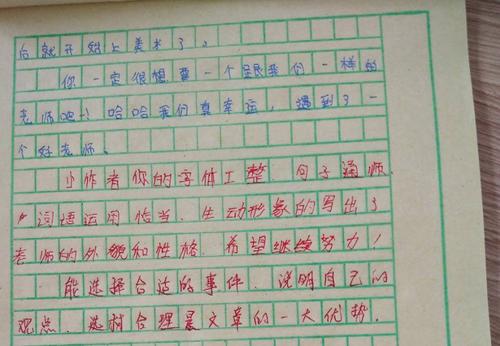 后就开始上美术了。
你一定很想要一个跟我们一样的
老师吧！哈哈我们真幸运，遇到了一
个好老师。
小作者你的字体工整 句子通顺
词语运用恰当．生动形象的写出了
老师的外貌和性格．希望继续努力！
能选择合适的事件．说明自己的
观点．选材合理是文章的一大优势．